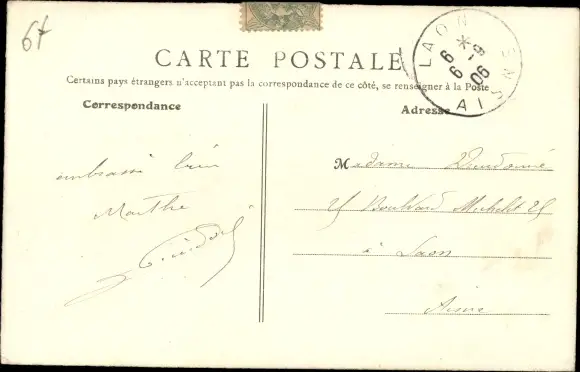 67
CARTE POSTALE
LAON AISNE
6 9 06
Certains pays étrangers n'acceptant pas la correspondance de ce côté, se renseigner à la Poste
Correspondance
Adresse
embrasse bien
Marthe
Madame Dieudonné
25 Boulvard Michelet 25
à Laon
Aisne